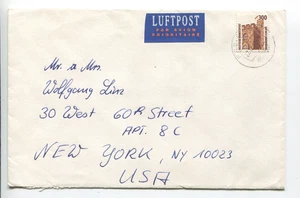 LUFTPOST
PAR AVION
PRIORITAIRE
300
Mr. a Mrs.
Wolfgang Linz
30 West 60th Street
APT. 8C
NEW YORK, NY 10023
USA